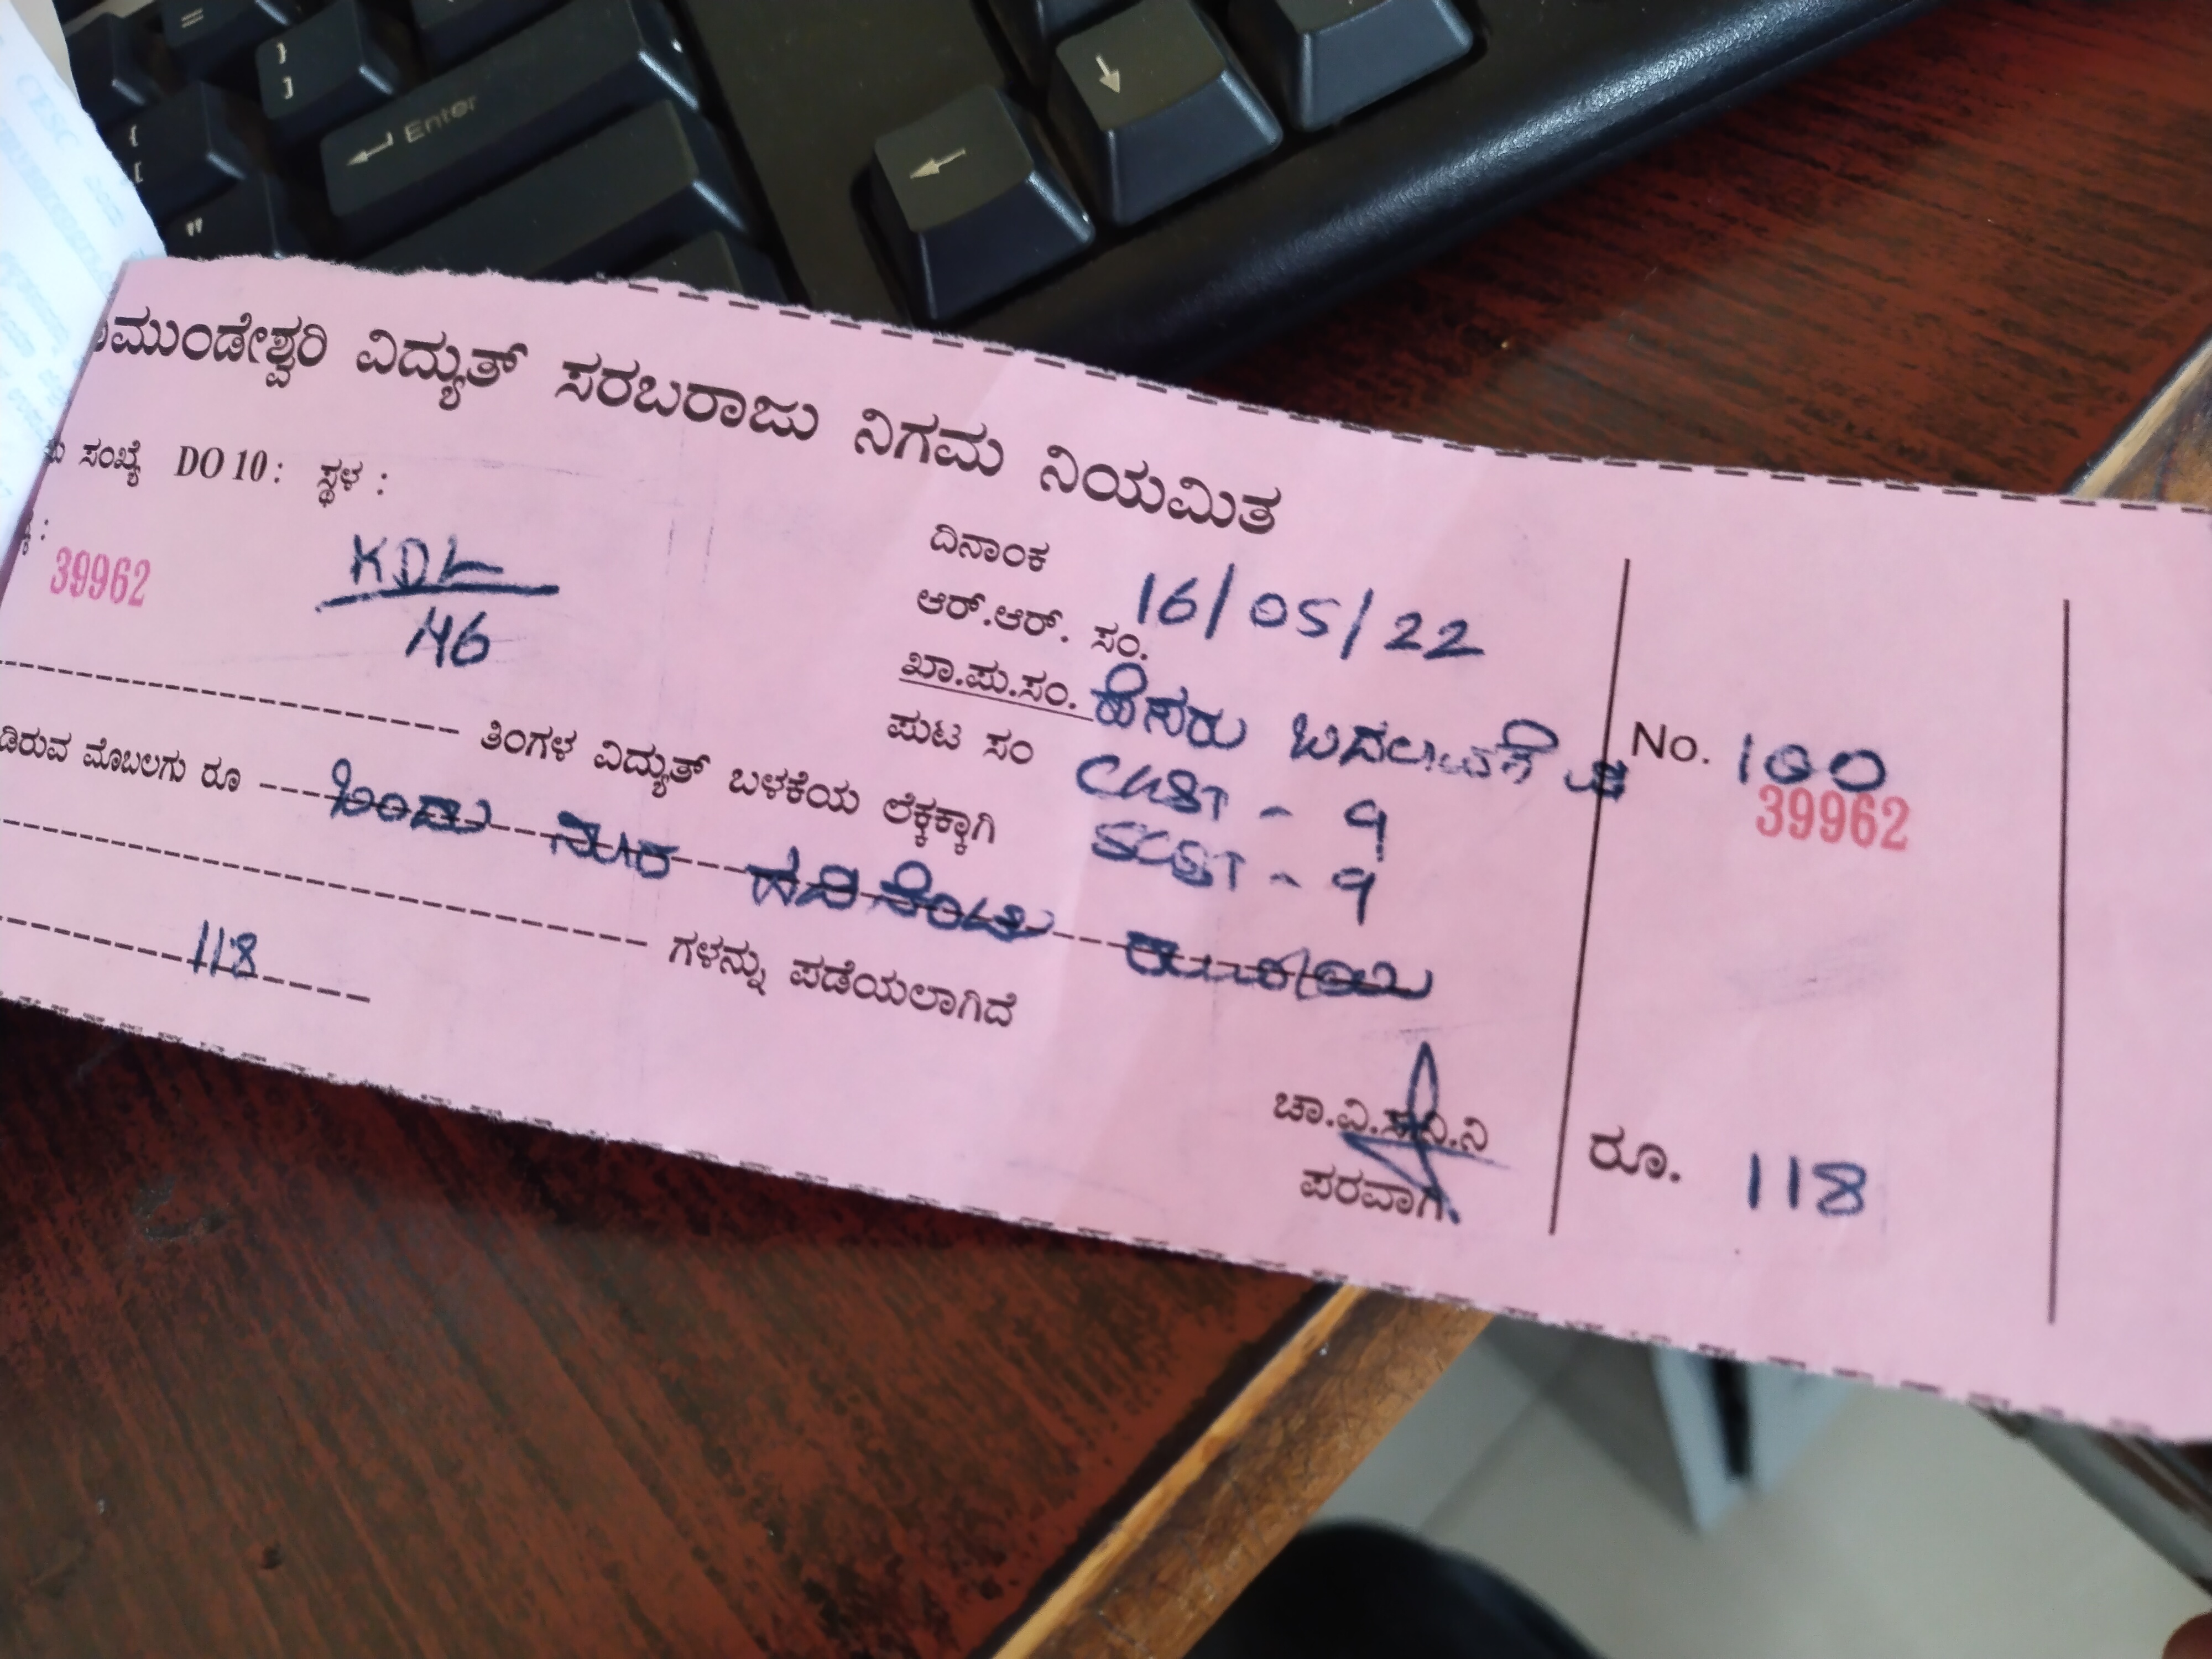 ಮುಂಡೇಶ್ವರಿ ವಿದ್ಯುತ್ ಸರಬರಾಜು ನಿಗಮ ನಿಯಮಿತ
ಸಂಖ್ಯೆ DO 10 : ಸ್ಥಳ :
39962
KDL
46
ದಿನಾಂಕ 16/05/22
ಆರ್.ಆರ್. ಸಂ.
ಖಾ.ಪು.ಸಂ. ಹೆಸರು ಬದಲಾವಣೆ
ಪುಟ ಸಂ CGST - 9
SGST - 9
ತಿಂಗಳ ವಿದ್ಯುತ್ ಬಳಕೆಯ ಲೆಕ್ಕಕ್ಕಾಗಿ
ಡಿರುವ ಮೊಬಲಗು ರೂ ಒಂದು ನೂರ ಹದಿನೆಂಟು ರೂಪಾಯಿ
ಗಳನ್ನು ಪಡೆಯಲಾಗಿದೆ
118
ಚಾ.ವಿ.ಸ.ನಿ.ನಿ
ಪರವಾಗಿ.
No. 100
39962
ರೂ. 118
Enter
CESC